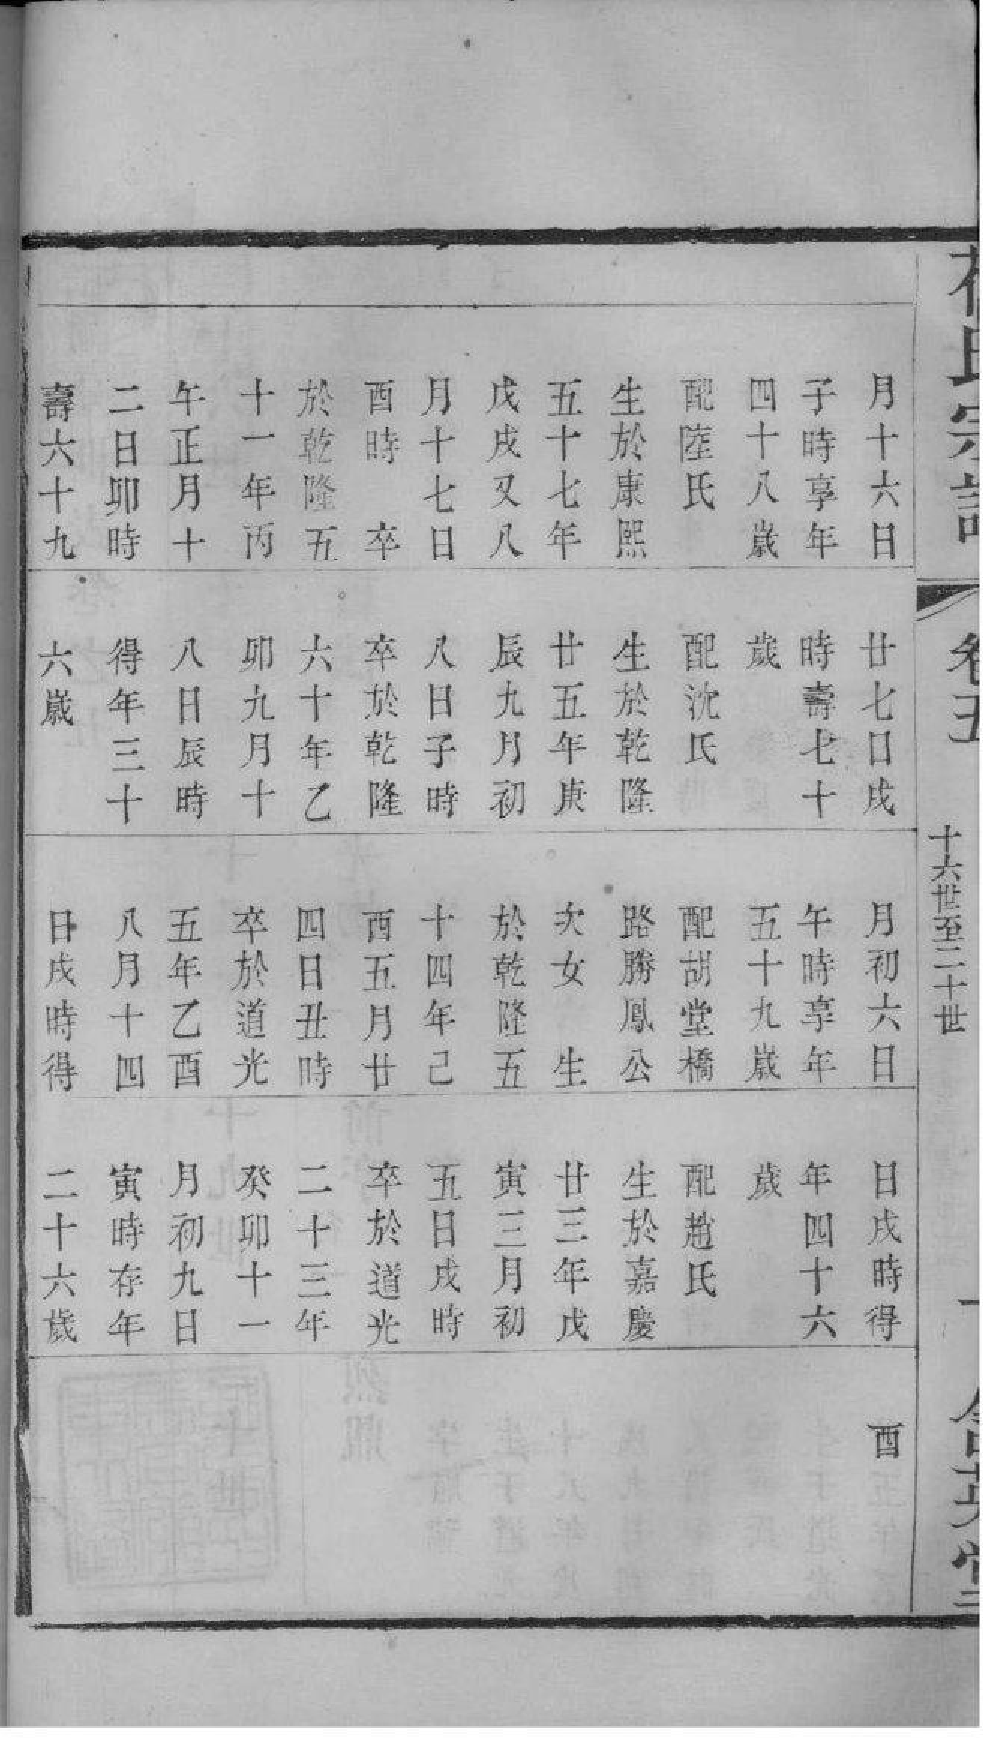 氏宗譜
卷五
十六世至二十世
月十六日
子時享年
四十八歲
配陸氏
生於康熙
五十七年
戊戌又八
月十七日
酉時 卒
於乾隆五
十一年丙
午正月十
二日卯時
壽六十九
廿七日戌
時壽七十
歲
配沈氏
生於乾隆
廿五年庚
辰九月初
八日子時
卒於乾隆
六十年乙
卯九月十
八日辰時
得年三十
六歲
月初六日
午時享年
五十九歲
配胡堂橋
路勝鳳公
次女 生
於乾隆五
十四年己
酉五月廿
四日丑時
卒於道光
五年乙酉
八月十四
日戌時得
日戌時得
年四十六
歲
配趙氏
生於嘉慶
廿三年戊
寅三月初
五日戌時
卒於道光
二十三年
癸卯十一
月初九日
寅時存年
二十六歲
酉